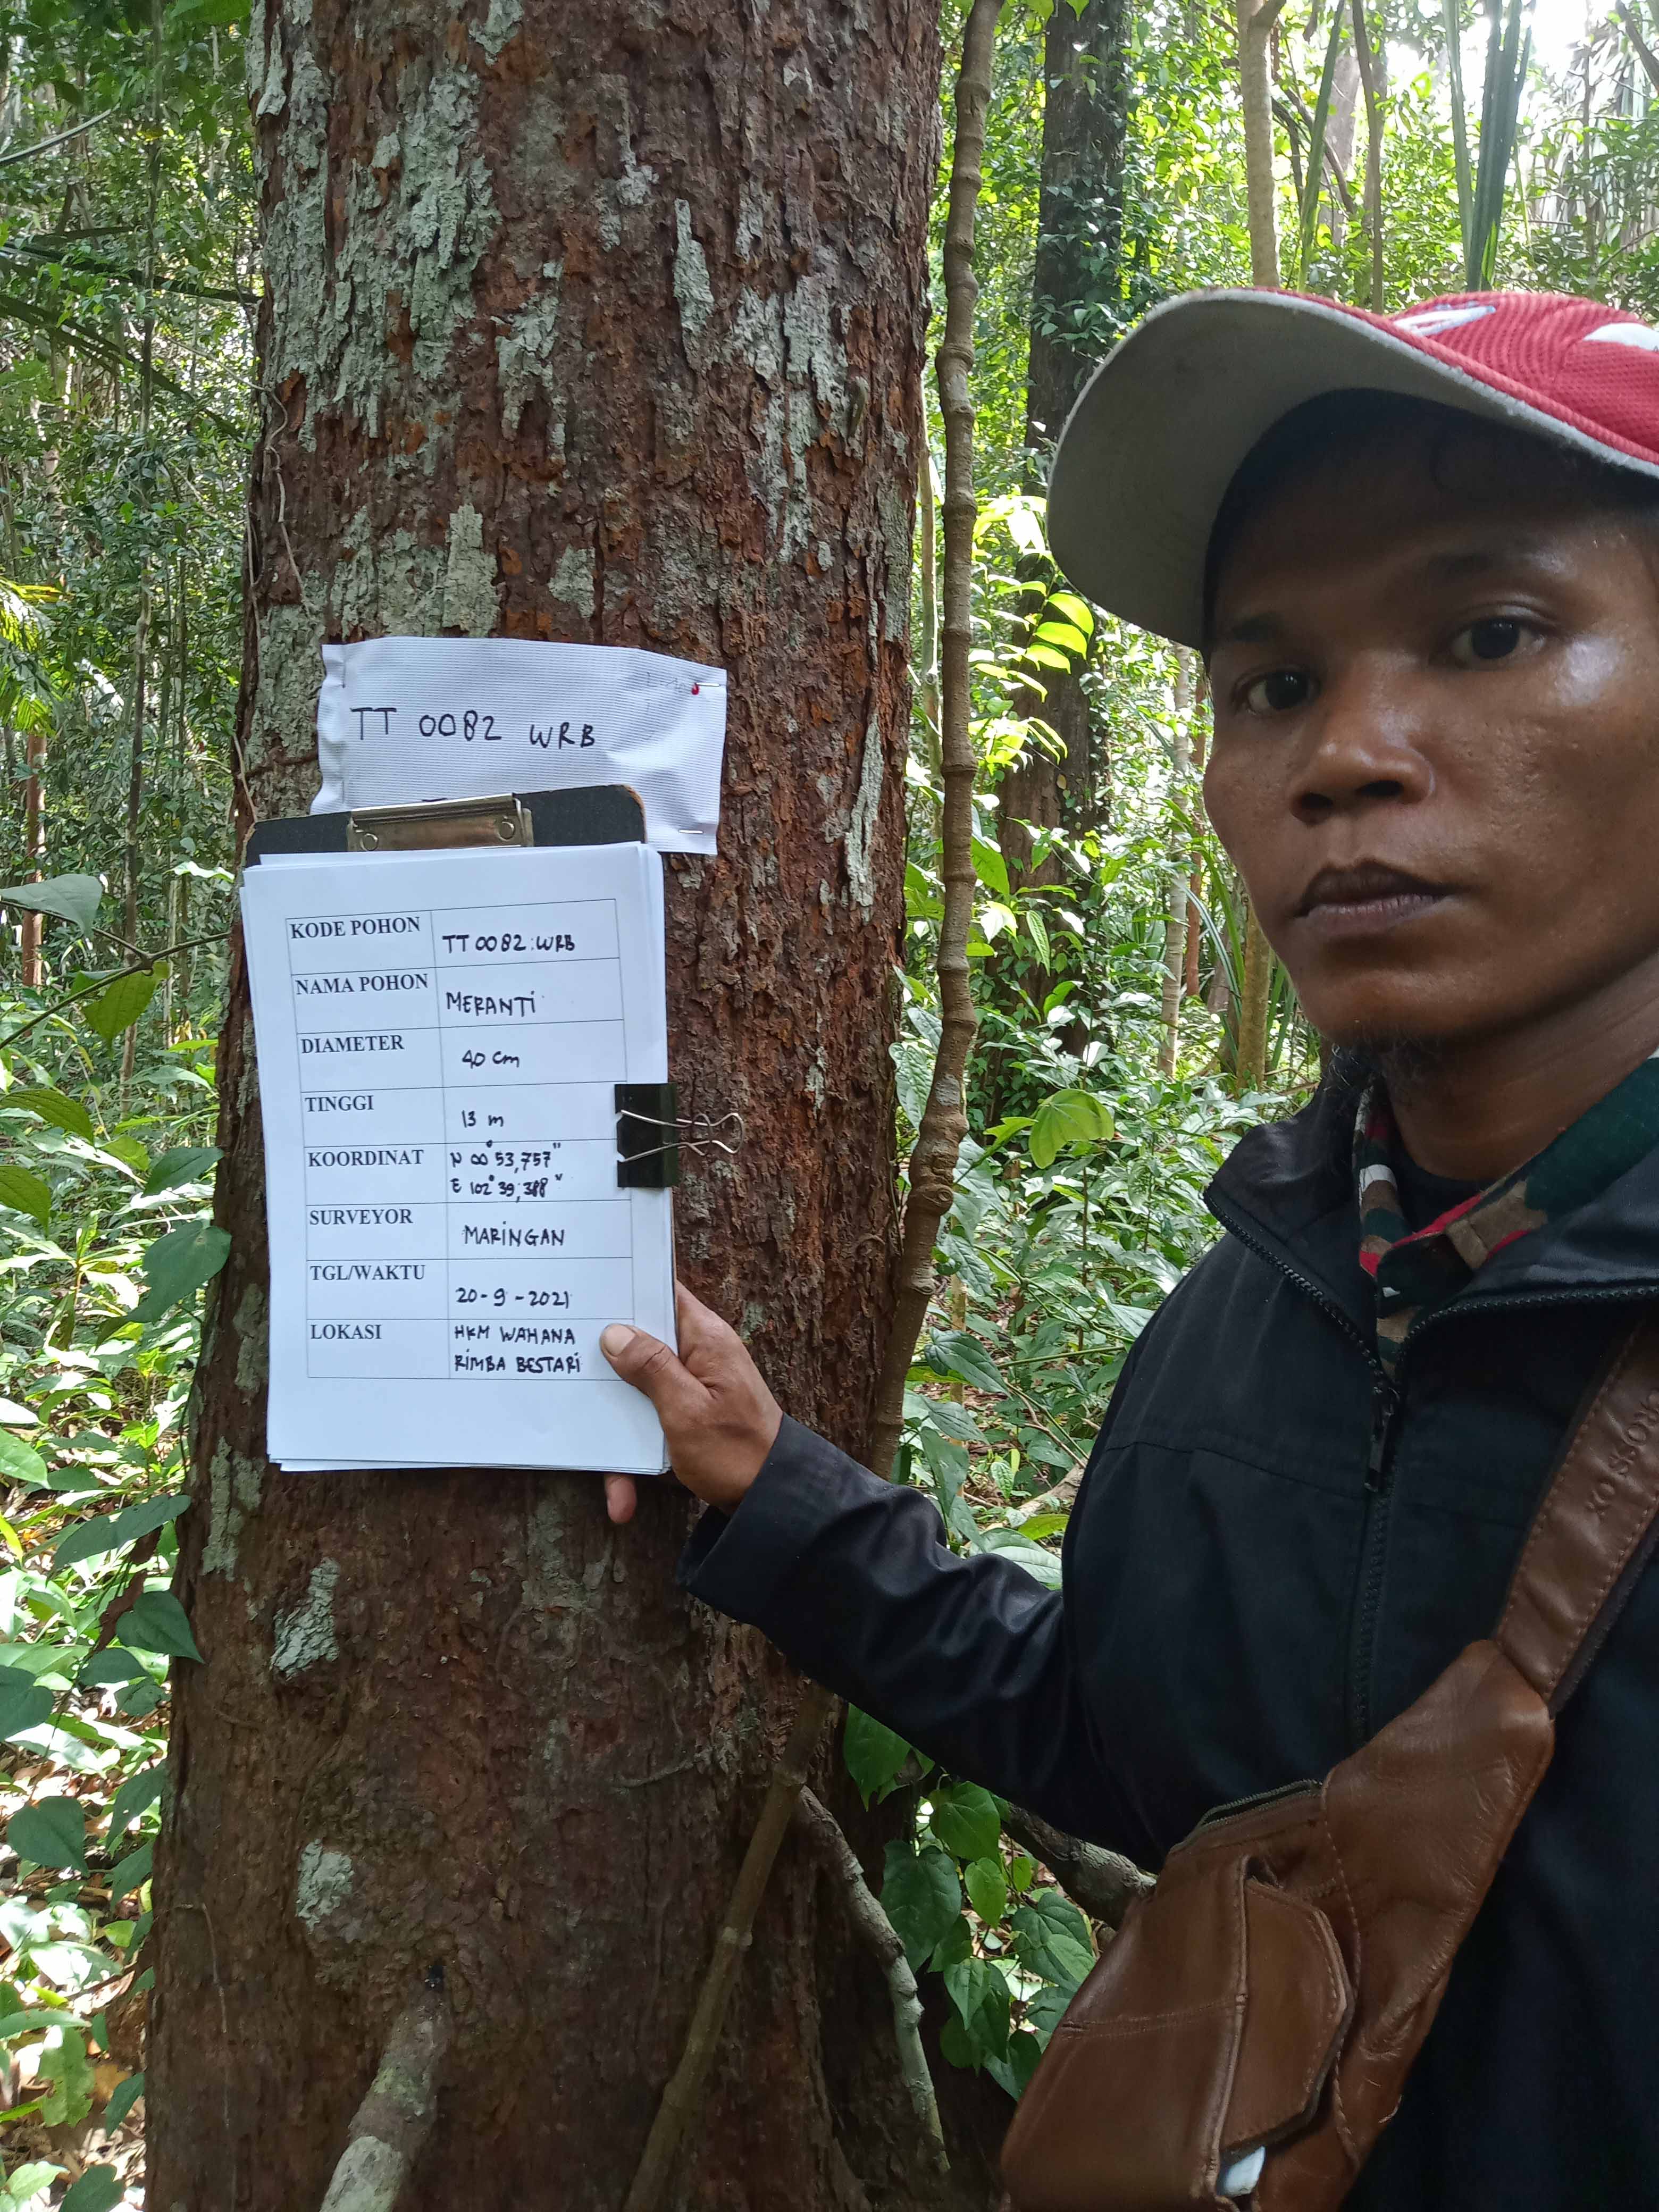 TT 0082 WRB
KODE POHON TT 0082:WRB
NAMA POHON MERANTI
DIAMETER 40 cm
TINGGI 13 m
KOORDINAT N 00° 53,757"
E 102° 39,388"
SURVEYOR MARINGAN
TGL/WAKTU 20-9-2021
LOKASI HKM WAHANA
RIMBA BESTARI